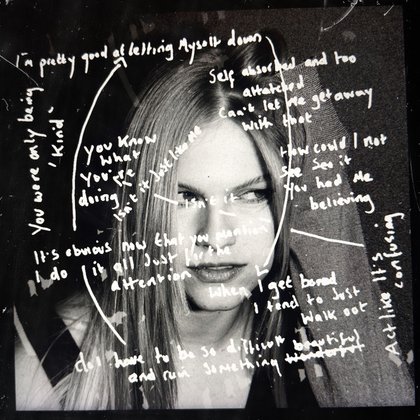 I'm pretty good at letting Myself down
Self absorbed and too
attatched
Can't let me get away
with that
You were only being
'Kind'
You Know
what
you're
doing
Isn't it just like me
isn't it
How could I not
see See it
You had Me
believing
It's obvious now that you mention
I do it all Just for the
attention
When I get bored
I tend to Just
walk out
Act like It's
confusing
do I have to be so difficult beautiful
and ruin something wonderful